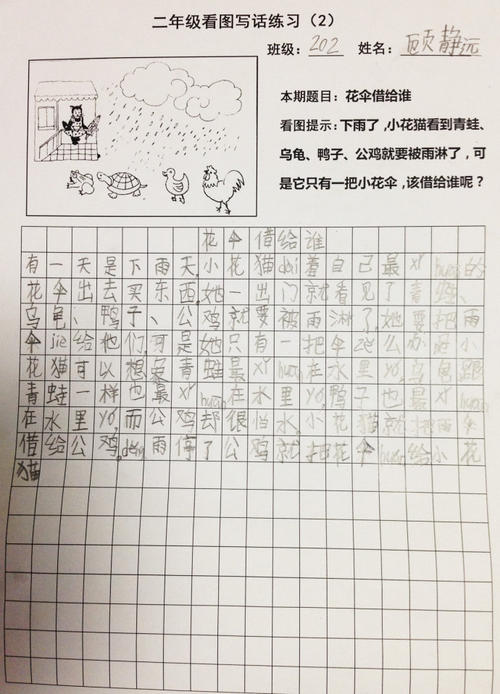 二年级看图写话练习（2）
班级：202 姓名：顾静远
本期题目：花伞借给谁
看图提示：下雨了，小花猫看到青蛙、
乌龟、鸭子、公鸡就要被雨淋了，可
是它只有一把小花伞，该借给谁呢？
花伞借给谁
有一天是下雨天，小花猫dai着自己最xi huan的
花伞出去买东西。她一出门就看见了青蛙、
乌龟、鸭子、公鸡就要被雨淋了，她要把雨
伞jie给他们，可是她只有一把伞怎么办呢小
花猫可以想安青蛙最xi huan在水里yo，乌龟跟
青蛙一样也最xi huan在水里yo，鸭子也最xi huan
在水里yo，而公鸡却很怕水。小花猫就把雨伞
借给公鸡，deng雨停了公鸡就把花伞huan给小花
猫